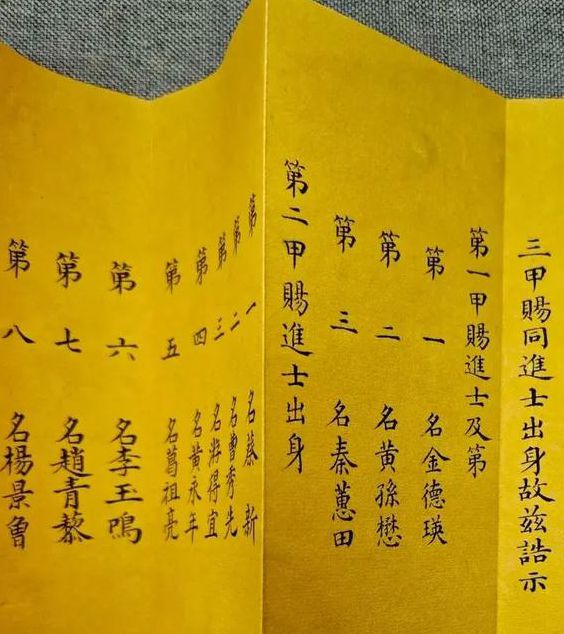 三甲賜同進士出身故茲誥示
第一甲賜進士及第
第一名金德瑛
第二名黃孫懋
第三名秦蕙田
第二甲賜進士出身
第一名蔡新
第二名曹秀先
第三名游得宜
第四名黃永年
第五名葛祖亮
第六名李玉鳴
第七名趙青藜
第八名楊景